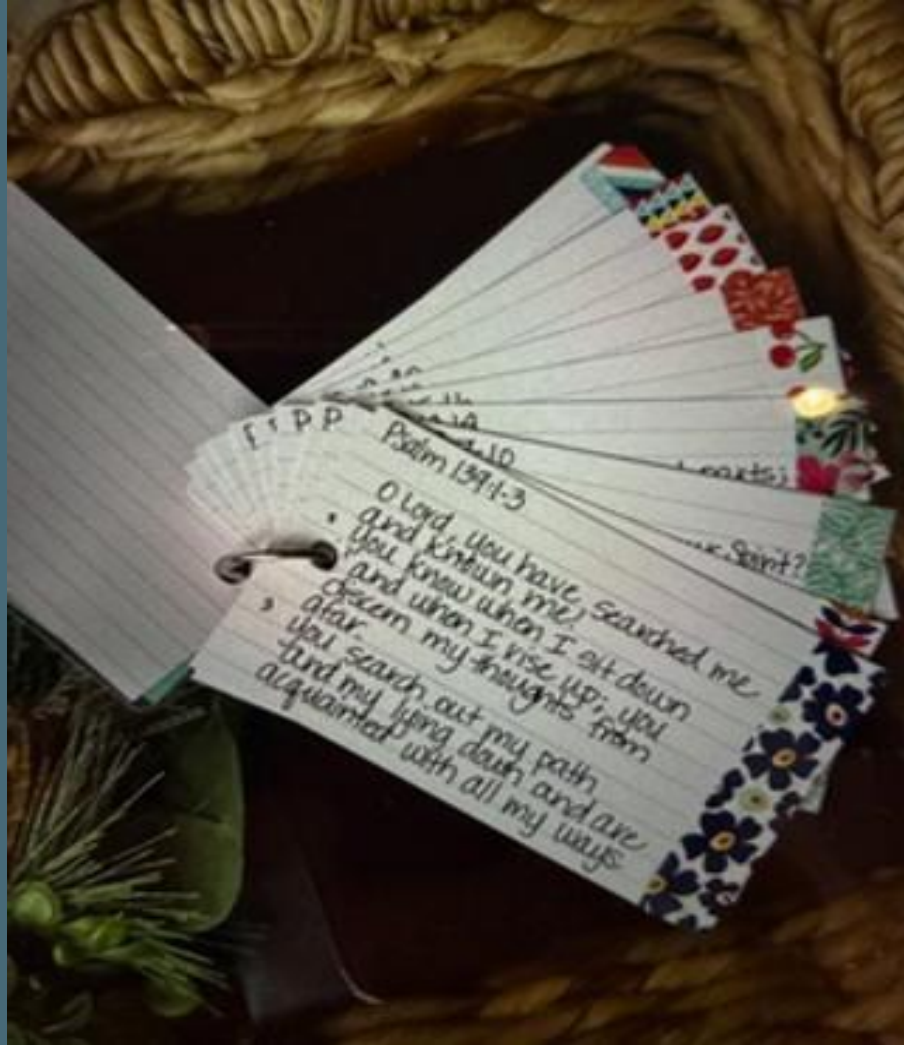 Psalm 139:1-3
O Lord, you have searched me
and known me,
you know when I sit down
and when I rise up; you
discern my thoughts from
afar.
you search out my path
and my lying down and are
acquainted with all my ways
parts;
Spirit?
P P